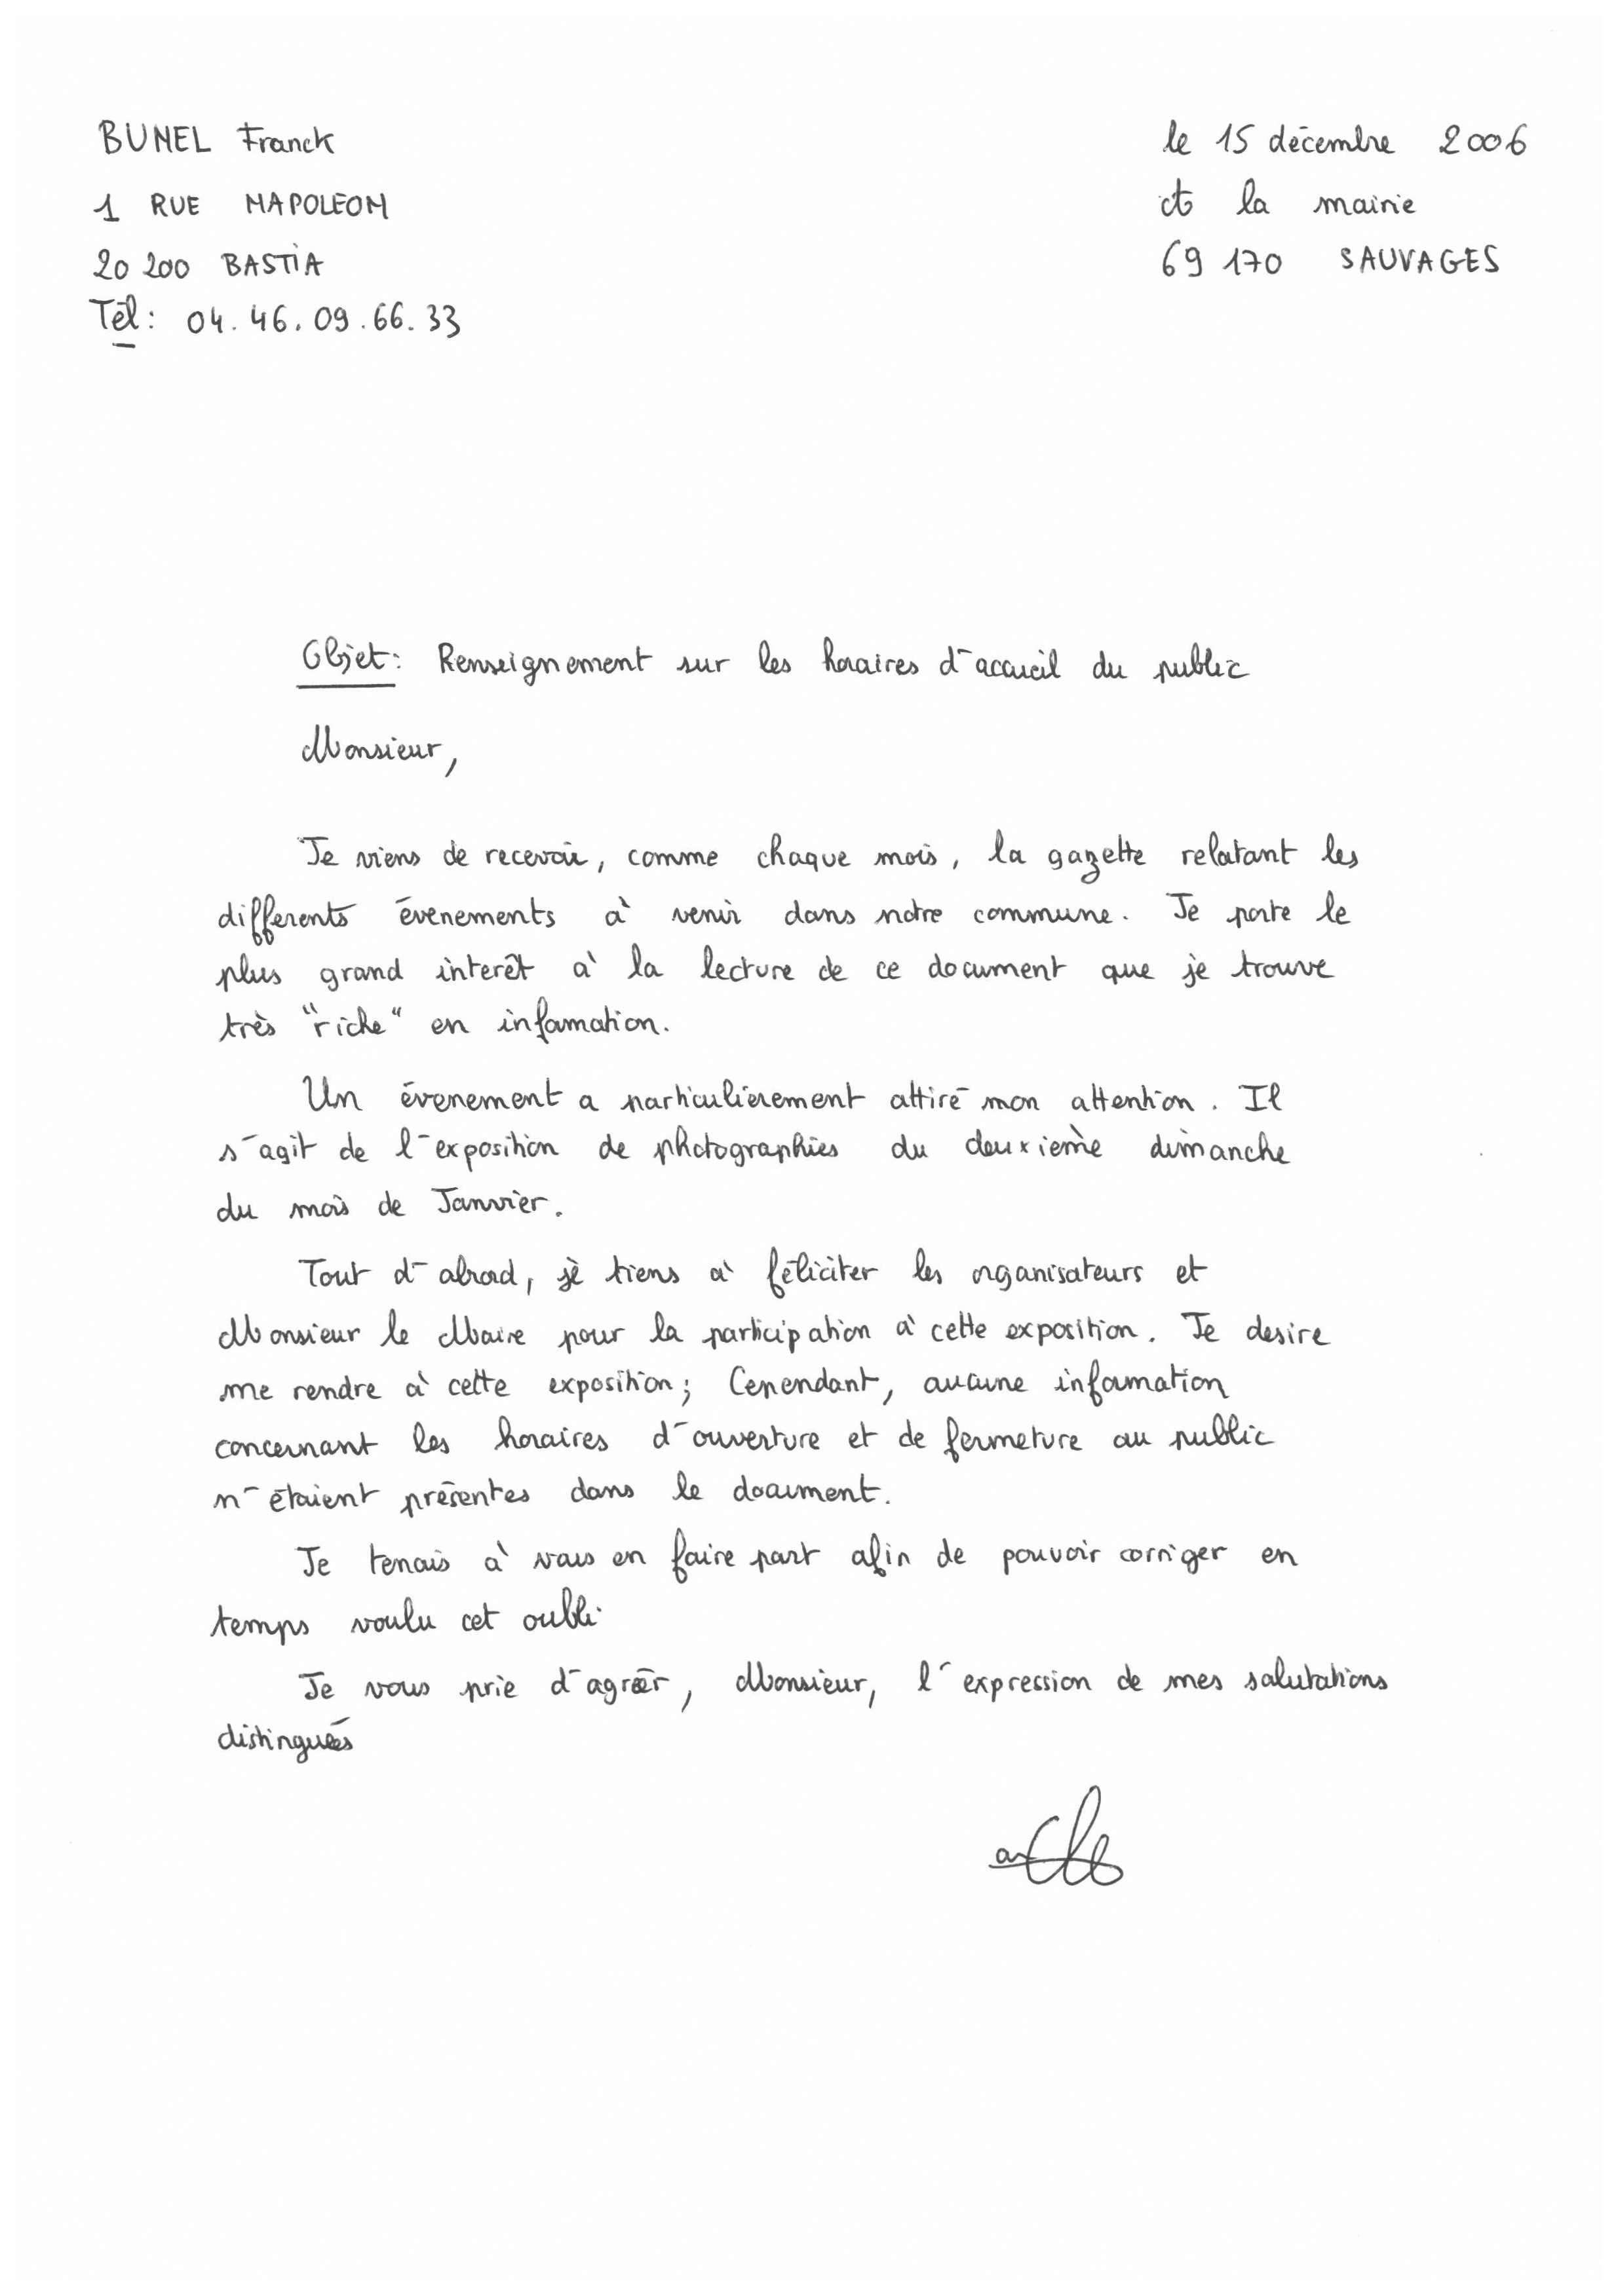 BUNEL Franck
1 RUE NAPOLEON
20 200 BASTIA
Tél : 04. 46. 09. 66. 33
le 15 décembre 2006
à la mairie
69 170 SAUVAGES
Objet : Renseignement sur les horaires d'accueil du public
Monsieur,
Je viens de recevoir, comme chaque mois, la gazette relatant les
differents évenements à venir dans notre commune. Je porte le
plus grand interêt à la lecture de ce document que je trouve
très "riche" en information.
Un évenement a particulièrement attiré mon attention. Il
s'agit de l'exposition de photographies du deuxième dimanche
du mois de Janvier.
Tout d'abord, je tiens à féliciter les organisateurs et
Monsieur le Maire pour la participation à cette exposition. Je desire
me rendre à cette exposition; Cependant, aucune information
concernant les horaires d'ouverture et de fermeture au public
n'étaient présentes dans le document.
Je tenais à vous en faire part afin de pouvoir corriger en
temps voulu cet oubli.
Je vous prie d'agréer, Monsieur, l'expression de mes salutations
distinguées